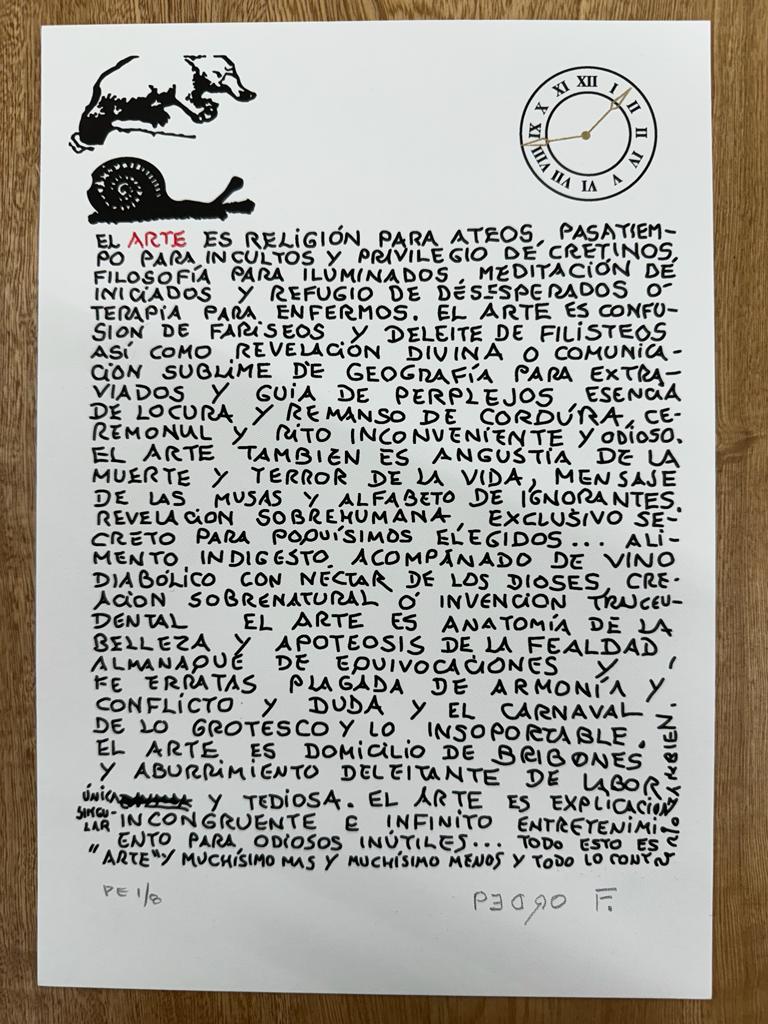 XII I II II IV V VI VII VIII XI X XI
EL ARTE ES RELIGIÓN PARA ATEOS, PASATIEM-
PO PARA INCULTOS Y PRIVILEGIO DE CRETINOS,
FILOSOFÍA PARA ILUMINADOS, MEDITACIÓN DE
INICIADOS Y REFUGIO DE DESESPERADOS O
TERAPIA PARA ENFERMOS. EL ARTE ES CONFU-
SION DE FARISEOS Y DELEITE DE FILISTEOS
ASÍ COMO REVELACIÓN DIVINA O COMUNICA-
CIÓN SUBLIME DE GEOGRAFÍA PARA EXTRA-
VIADOS Y GUIA DE PERPLEJOS ESENCIA
DE LOCURA Y REMANSO DE CORDURA, CE-
REMONUL Y RITO INCONVENIENTE Y ODIOSO.
EL ARTE TAMBIEN ES ANGUSTIA DE LA
MUERTE Y TERROR DE LA VIDA, MENSAJE
DE LAS MUSAS Y ALFABETO DE IGNORANTES.
REVELACION SOBREHUMANA, EXCLUSIVO SE-
CRETO PARA POQUÍSIMOS ELEGIDOS... ALI-
MENTO INDIGESTO. ACOMPAÑADO DE VINO
DIABÓLICO CON NÉCTAR DE LOS DIOSES, CRE-
ACION SOBRENATURAL O INVENCION TRANCEU-
DENTAL EL ARTE ES ANATOMÍA DE LA
BELLEZA Y APOTEOSIS DE LA FEALDAD
ALMANAQUE DE EQUIVOCACIONES Y
FE ERRATAS PLAGADA DE ARMONÍA Y
CONFLICTO Y DUDA Y EL CARNAVAL
DE LO GROTESCO Y LO INSOPORTABLE.
EL ARTE ES DOMICILIO DE BRIBONES
Y ABURRIMIENTO DELEITANTE DE LABOR
ÚNICA Y TEDIOSA. EL ARTE ES EXPLICACIÓN
SINGU-
LAR INCONGRUENTE E INFINITO ENTRETENIMI
ENTO PARA ODIOSOS INÚTILES... TODO ESTO ES
"ARTE" Y MUCHÍSIMO MAS Y MUCHÍSIMO MENOS Y TODO LO CONTRA
RIO TAMBIEN.
PE 1/8
PEDRO F.